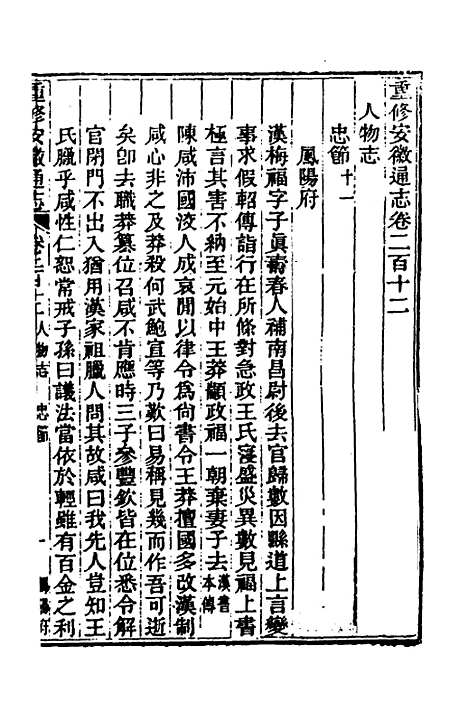 重修安徽通志卷二百十二
人物志
忠節十一
鳳陽府
漢梅福字子眞壽春人補南昌尉後去官歸數因縣道上言變
事求假軺傳詣行在所條對急政王氏寖盛災異數見福上書
極言其害不納至元始中王莽顓政福一朝棄妻子去漢書本傳
陳咸沛國洨人成哀閒以律令爲尙書令王莽擅國多改漢制
咸心非之及莽殺何武鮑宣等乃歎曰易稱見幾而作吾可逝
矣卽去職莽篡位召咸不肯應時三子參豐欽皆在位悉令解
官閉門不出入猶用漢家祖臘人問其故咸曰我先人豈知王
氏臘乎咸性仁恕常戒子孫曰議法當依於輕雖有百金之利
重修安徽通志 卷二百十二 人物志 忠節 一 鳳陽府